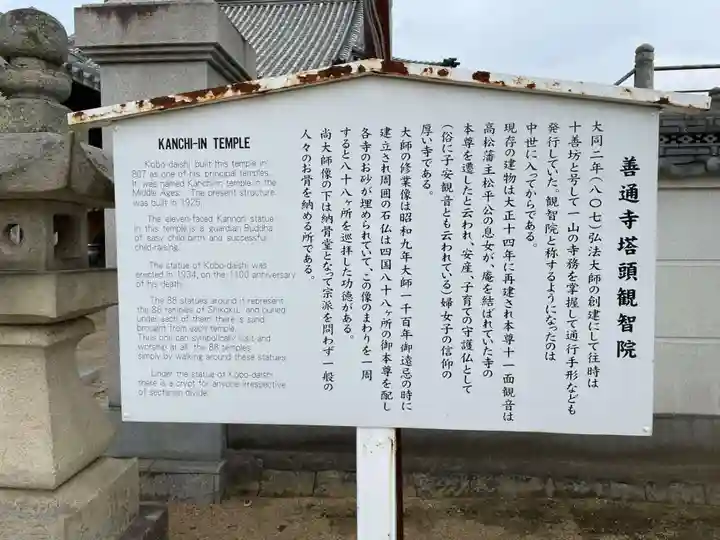 善通寺塔頭観智院
大同二年(八〇七)弘法大師の創建にして往時は
十善坊と号して一山の寺務を掌握して通行手形なども
発行していた。観智院と称するようになったのは
中世に入ってからである。
現存の建物は大正十四年に再建され本尊十一面観音は
高松藩主松平公の息女が、庵を結ばれていた寺の
本尊を遷したと云われ、安産、子育ての守護仏として
(俗に子安観音とも云われている)婦女子の信仰の
厚い寺である。
大師の修業像は昭和九年大師一千百年御遠忌の時に
建立され周囲の石仏は四国八十八ヶ所の御本尊を配し
各寺のお砂が埋められていて、この像のまわりを一周
すると八十八ヶ所を巡拝した功徳がある。
尚大師像の下は納骨堂となって宗派を問わず一般の
人々のお骨を納める所である。
KANCHI-IN TEMPLE
Kobo-daishi built this temple in
807 as one of his principal temples.
It was named Kanchi-in temple in the
Middle Ages. The present structure
was built in 1925.
The eleven-faced Kannon statue
in this temple is a guardian Buddha
of easy child-birth and successful
child-raising.
The statue of Kobo-daishi was
erected in 1934, on the 1100 anniversary
of his death.
The 88 statues around it represent
the 88 temples of Shikoku, and buried
under each of them there is sand
brought from each temple.
Thus one can symbolically visit and
worship at all the 88 temples
simply by walking around these statues.
Under the statue of Kobo-daishi
there is a crypt for anyone irrespective
of sectarian divide.